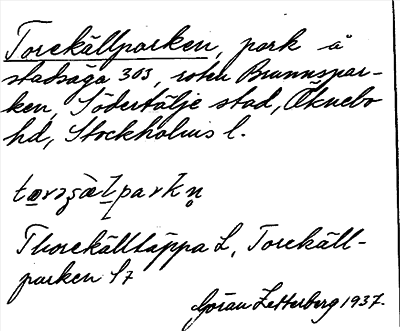 Torekällparken, park å
stadsäga 303, roten Brunnspar-
ken, Södertälje stad, Öknebo
hd, Stockholms l.
Thorekälltäppa L, Torekäll-
parken S7
Göran Zetterberg 1937.